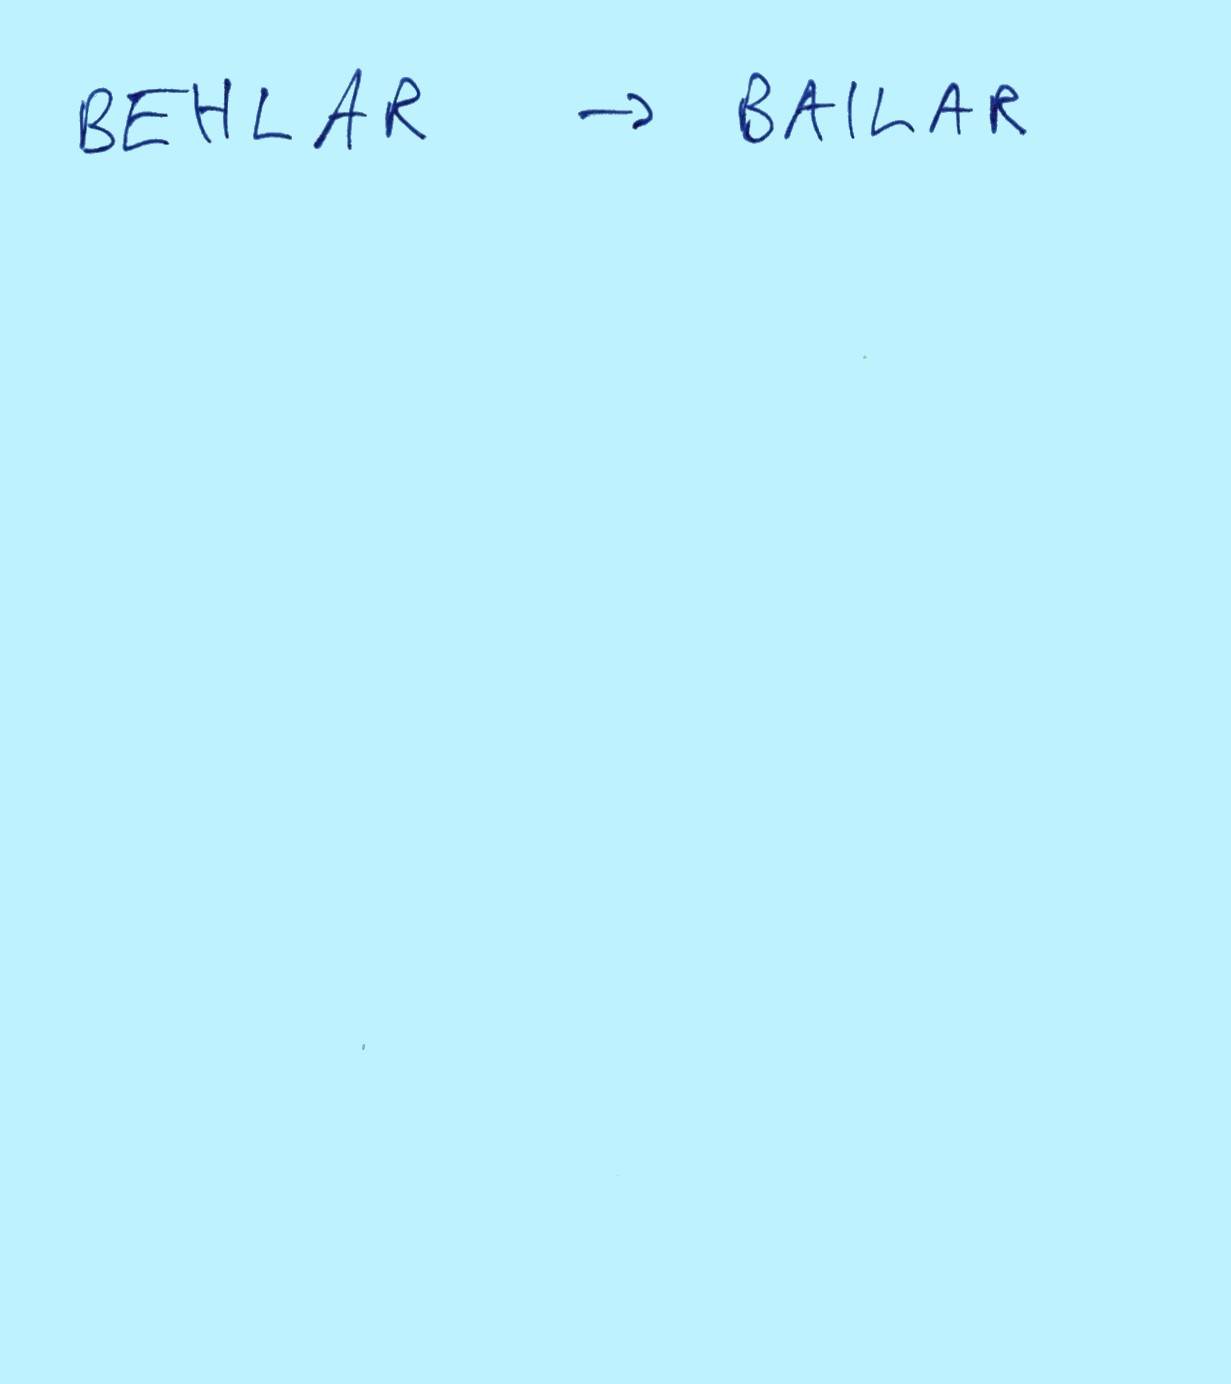 BEHLAR → BAILAR